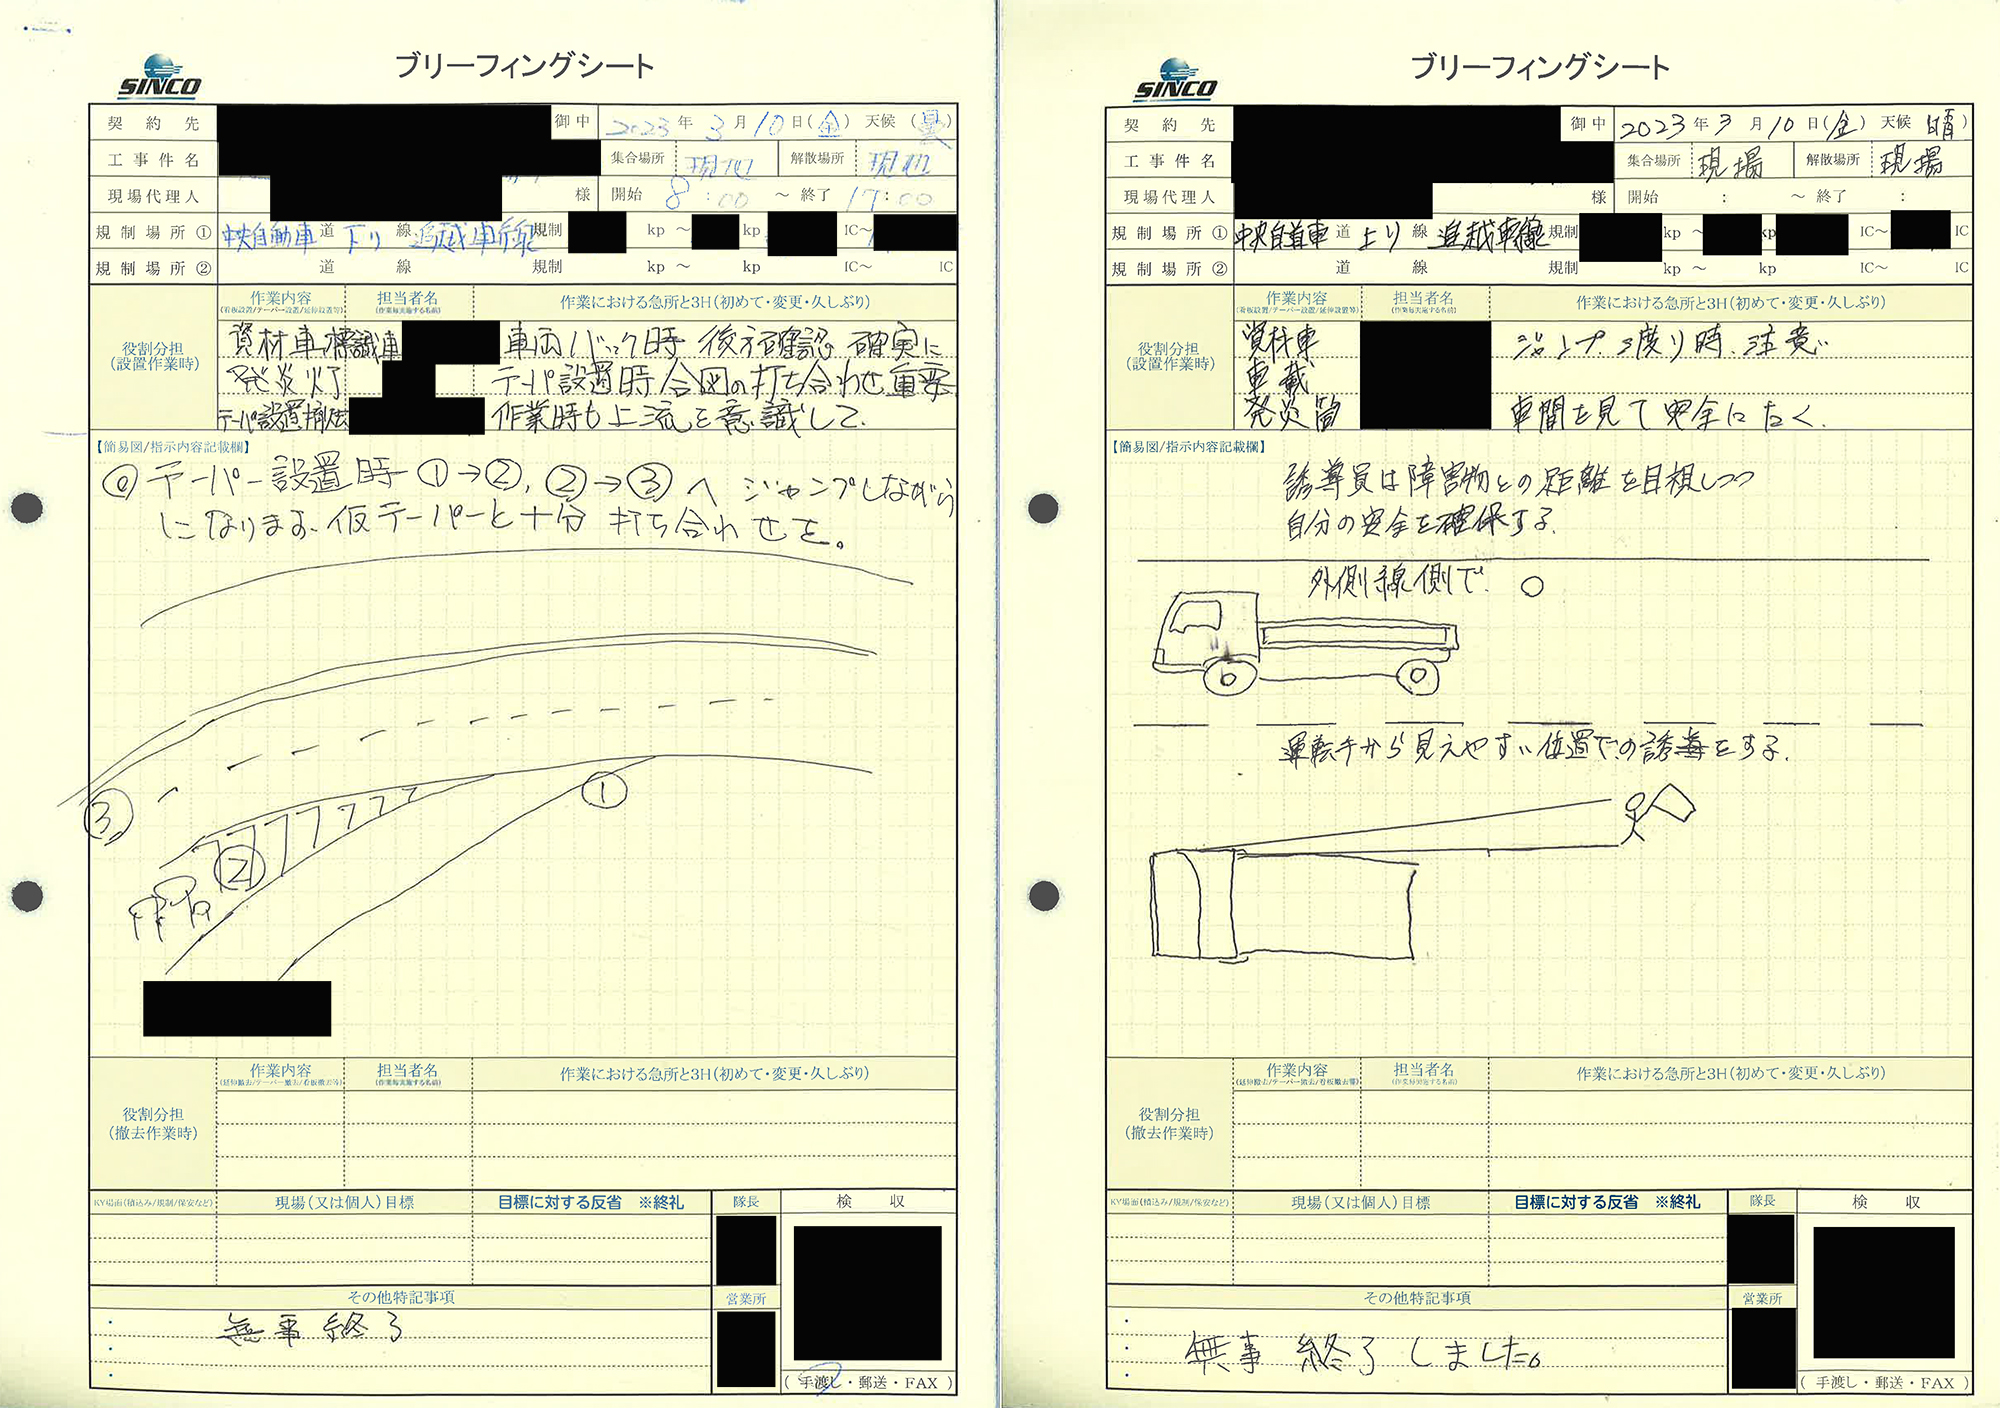 SINCO
ブリーフィングシート
契約先 御中 2023年3月10日(金) 天候(曇)
工事件名 集合場所 現地 解散場所 現地
現場代理人 様 開始 8:00 ～ 終了 17:00
規制場所① 中央自動車道 下り線 追越車線 規制 kp ～ kp IC～
規制場所② 道 線 規制 kp ～ kp IC～ IC
作業内容 担当者名 作業における急所と3H(初めて・変更・久しぶり)
(看板設置/テーパー設置/延伸設置等) (作業毎実施する名前)
役割分担
(設置作業時)
資材車 標識車 車両バック時 後方確認 確実に
発炎灯 テーパ設置時 合図の打ち合わせ重要
テーパ設置補佐 作業時も上流を意識して.
【簡易図/指示内容記載欄】
◎テーパー設置時 ①→②, ②→③へ ジャンプしながら
になります、仮テーパーと十分 打ち合わせを。
①
③
②
作業内容 担当者名 作業における急所と3H(初めて・変更・久しぶり)
(延伸撤去/テーパー撤去/看板撤去等) (作業毎実施する名前)
役割分担
(撤去作業時)
KY場面(積込み/規制/保安など) 現場(又は個人)目標 目標に対する反省 ※終礼 隊長 検収
その他特記事項 営業所
無事 終了
(手渡し・郵送・FAX)
SINCO
ブリーフィングシート
契約先 御中 2023年3月10日(金) 天候 晴)
工事件名 集合場所 現場 解散場所 現場
現場代理人 様 開始 : ～ 終了 :
規制場所① 中央自動車道 上り線 追越車線 規制 kp ～ kp IC～ IC
規制場所② 道 線 規制 kp ～ kp IC～ IC
作業内容 担当者名 作業における急所と3H(初めて・変更・久しぶり)
(看板設置/テーパー設置/延伸設置等) (作業毎実施する名前)
役割分担
(設置作業時)
資材車 ジャンプ 渡り時 注意
車載
発炎筒 車間を見て安全にたく.
【簡易図/指示内容記載欄】
誘導員は障害物との距離を目視しつつ
自分の安全を確保する.
外側線側で. ○
運転手から見えやすい位置での誘導をする.
作業内容 担当者名 作業における急所と3H(初めて・変更・久しぶり)
(延伸撤去/テーパー撤去/看板撤去等) (作業毎実施する名前)
役割分担
(撤去作業時)
KY場面(積込み/規制/保安など) 現場(又は個人)目標 目標に対する反省 ※終礼 隊長 検収
その他特記事項 営業所
無事 終了しました。
(手渡し・郵送・FAX)